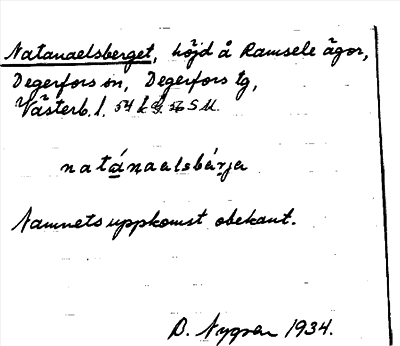 Natanaelsberget, höjd å Ramsele ägor,
Degerfors sn, Degerfors tg,
Västerb. l. 54 h S.U.
natánaalsbárja
Namnets uppkomst obekant.
B. Nygren 1934.